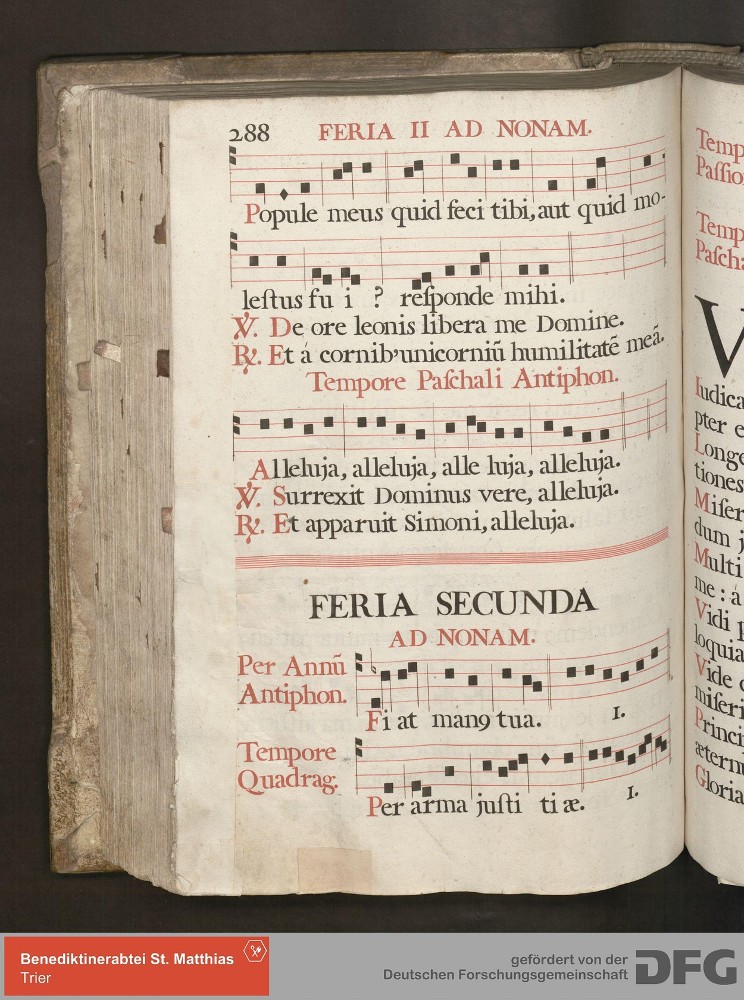 288 FERIA II AD NONAM.
Popule meus quid feci tibi, aut quid mo-
leſtus fu i ? reſponde mihi.
℣. De ore leonis libera me Domine.
℟. Et á cornib’unicorniũ humilitatẽ meã.
Tempore Paſchali Antiphon.
Alleluja, alleluja, alle luja, alleluja.
℣. Surrexit Dominus vere, alleluja.
℟. Et apparuit Simoni, alleluja.
FERIA SECUNDA
AD NONAM.
Per Annũ
Antiphon.
Fi at manꝯ tua. 1.
Tempore
Quadrag.
Per arma juſti ti æ. 1.
Temp
Paſſio
Temp
Paſcha
V
Iudica
pter e
Longe
tiones
Miſer
dum j
Multi
me : á
Vidi p
loquia
Vide q
miſeri
Princi
ætern
Gloria
Benediktinerabtei St. Matthias
Trier
gefördert von der
Deutschen Forschungsgemeinschaft
DFG